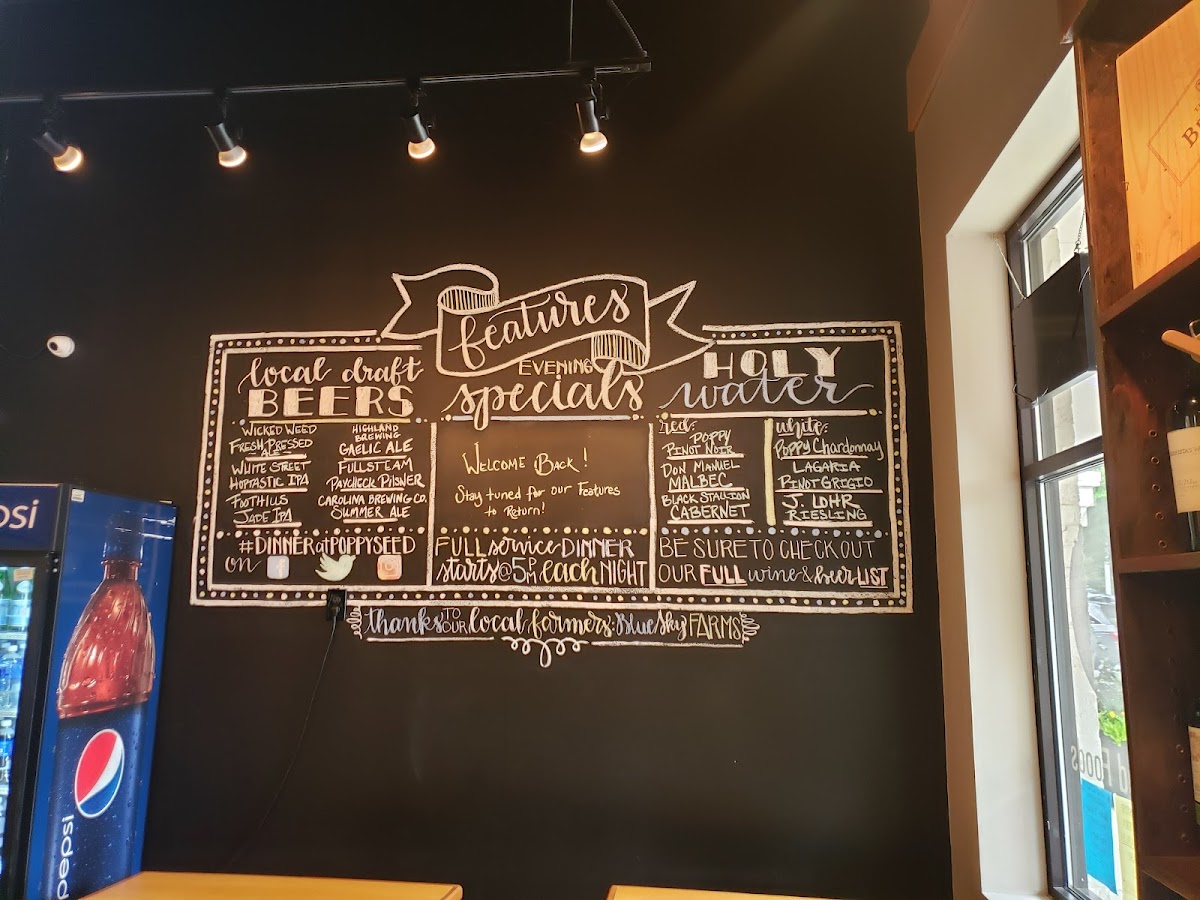 features
local draft
BEERS
WICKED WEED
FRESH PRESSED
ALE
WHITE STREET
HOPTASTIC IPA
FOOTHILLS
JADE IPA
HIGHLAND
BREWING
GAELIC ALE
FULLSTEAM
PAYCHECK PILSNER
CAROLINA BREWING CO.
SUMMER ALE
#DINNERatPOPPYSEED
on
EVENING
specials
WELCOME BACK!
Stay tuned for our Features
to Return!
FULL service DINNER
starts @ 5PM each NIGHT
HOLY
water
red:
POPPY
PINOT NOIR
DON MANUEL
MALBEC
BLACK STALLION
CABERNET
white:
POPPY CHARDONNAY
LAGARIA
PINOT GRIGIO
J. LOHR
RIESLING
BE SURE TO CHECK OUT
OUR FULL wine & beer LIST
thanks TO OUR local farmers: Blue Sky FARMS
psi
pepsi
Foods